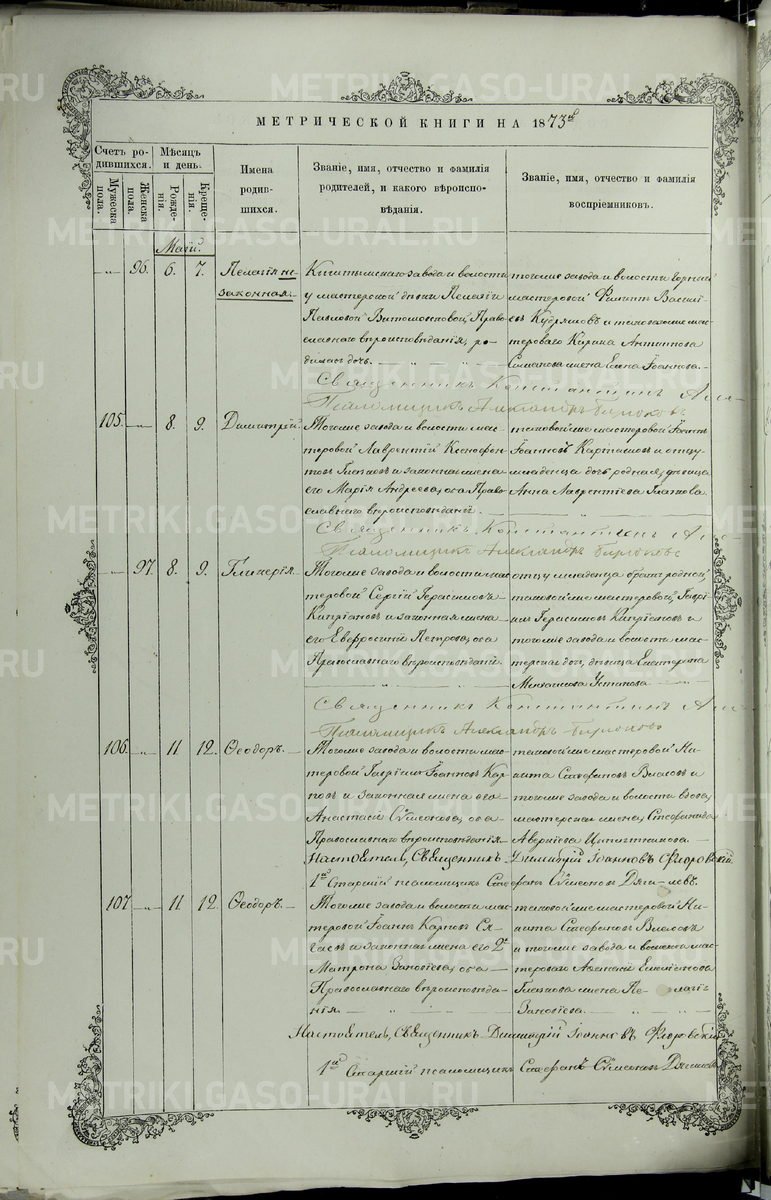 МЕТРИЧЕСКОЙ КНИГИ НА 1873й
Счетъ родившихся.
Мужеска пола.
Женска пола.
Мѣсяцъ и день.
Рожденія.
Крещенія.
Имена родившихся.
Званіе, имя, отчество и фамилія родителей, и какого вѣроисповѣданія.
Званіе, имя, отчество и фамилія воспріемниковъ.
Маій.
96. 6. 7. Пелагія незаконная.
Кыштымскаго завода и волости
у мастерской дѣвки Пелагіи
Павловой, Православнаго вѣроисповѣданія, родилась дочь.
тогоже завода и волости горный
мастеровой Филиппъ Василіевъ Кудряшовъ и тогоже мастероваго Карпа Антипова
жена Елена Іоаннова.
Священникъ Константинъ
Псаломщикъ Александръ Бирюковъ
105. 8. 9. Димитрій.
Тогоже завода и волости мастеровой Лаврентій Ксенофонтовъ Глазковъ и законная жена
его Марія Андреева, оба Православнаго вѣроисповѣданія.
таковойже мастеровой Іоаннъ
Іоанновъ Карташовъ и отцу
младенца дочь родная, дѣвица
Анна Лаврентіева Глазкова
Священникъ Константинъ
Псаломщикъ Александръ Бирюковъ
97. 8. 9. Гликерія.
Тогоже завода и волости мастеровой Сергій Герасимовъ
Кипріяновъ и законная жена
его Евфросинія Петрова, оба
Православнаго вѣроисповѣданія
отцу младенца братъ родной,
таковойже мастеровой, Гавріилъ Герасимовъ Кипріяновъ и
тогоже завода и волости мастерская дочь, дѣвица Екатерина
Устинова
Священникъ Константинъ
Псаломщикъ Александръ Бирюковъ
106. 11 12. Ѳеодоръ.
Тогоже завода и волости мастеровой Гавріилъ Іоанновъ Карповъ и законная жена его
Анастасія Сѵмеонова, оба
Православнаго вѣроисповѣданія
таковойже мастеровой Никита Стефановъ Власовъ и
тогоже завода и волости вдова,
мастерская жена, Стефанида
Аверкіева
Настоятель, Священникъ Димитрій Іоанновъ Флоровскій
1й Старшій псаломщикъ Стефанъ Сѵмеоновъ Дягилевъ.
107 11 12. Ѳеодоръ.
Тогоже завода и волости мастеровой Іоаннъ Карповъ
и законная жена его 2я
Матрона, оба
Православнаго вѣроисповѣданія.
таковойже мастеровой Никита Стефановъ Власовъ
и тогоже завода и волости мастероваго Аѳанасія
Глазкова жена Пелагія
Настоятель, Священникъ Димитрій Іоанновъ Флоровскій
1й Старшій псаломщикъ Стефанъ Сѵмеоновъ Дягилевъ
METRIKI.GASO-URAL.RU